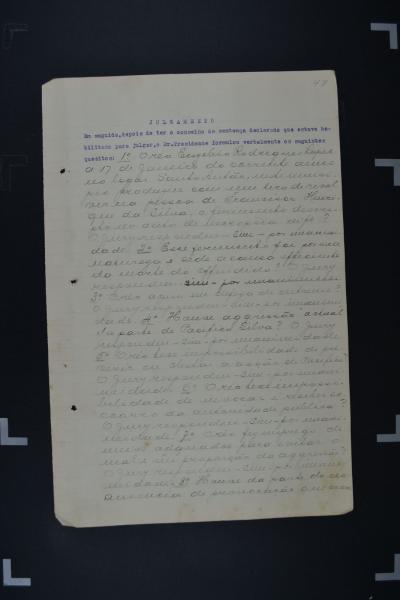 47
JULGAMENTO
Em seguida, depois de ter o conselho de sentença declarado que estava ha-
bilitado para julgar, o Dr. Presidente formulou verbalmente os seguintes
quesitos: 1º O réo Rodrigues Lopes
a 17 de Janeiro do corrente anno
no logar Santo
produziu com um tiro de
na pessoa de Francisco
da Silva, o ferimento
no auto de
O Jury respondeu - Sim - por unanimi-
dade. 2º Esse ferimento foi por sua
natureza e séde a causa efficiente
da morte do offendido? O Jury
respondeu - Sim - por unanimidade
3º O réo agiu em defeza de
O Jury respondeu - Sim - por unanimi-
dade. 4º Houve aggressão actual
da parte de Silva? O Jury
respondeu - Sim - por unanimidade
5º O réo teve impossibilidade de pre-
venir ou obstar a acção de
O Jury respondeu - Sim - por unani-
midade. 6º O réo teve impossi-
bilidade de invocar e receber so-
ccorro da autoridade publica?
O Jury respondeu - Sim - por unani-
midade. 7º O réo fez emprego de
meios adequados para evitar o
mal e em proporção da aggressão?
O Jury respondeu - Sim - por unani-
midade. 8º Houve da parte do réo
ausencia de provocação que